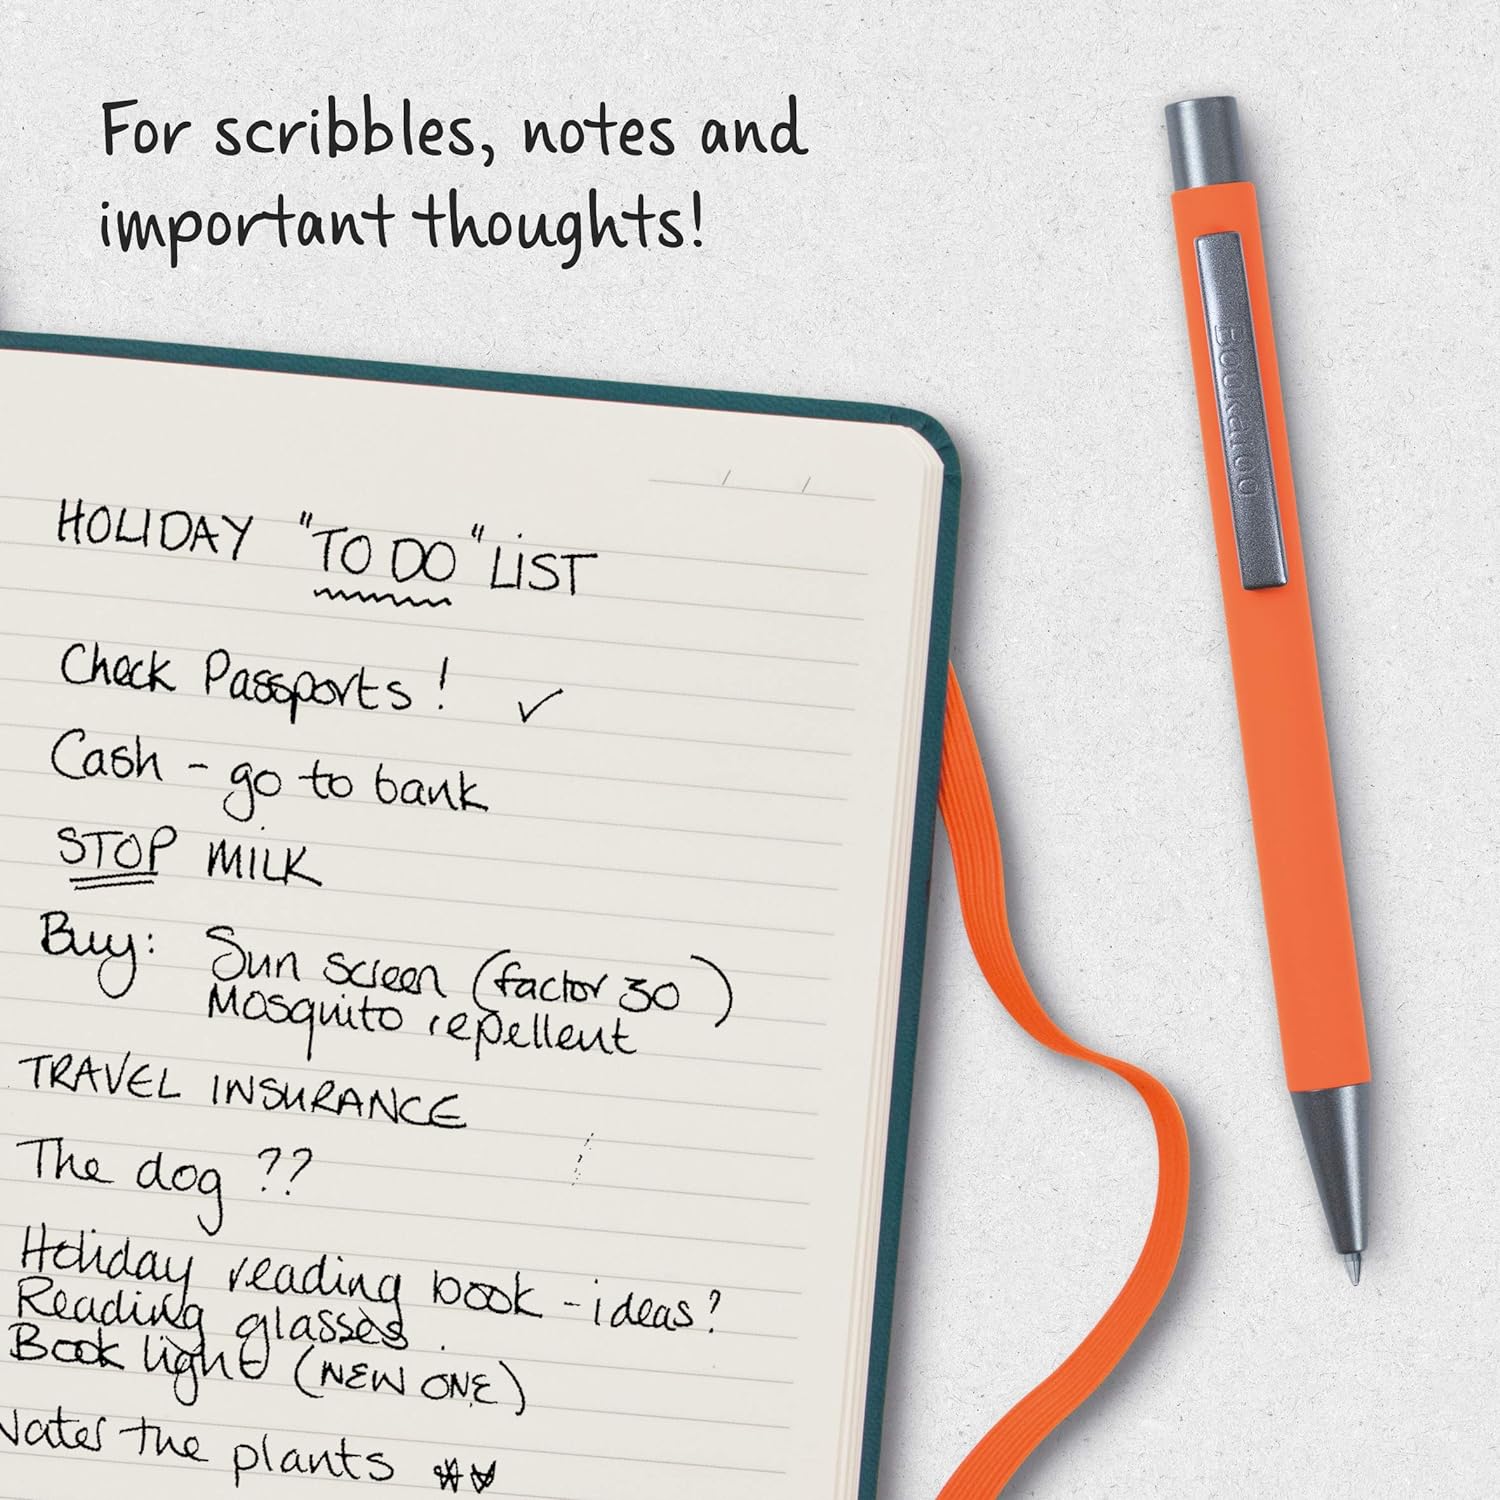 For scribbles, notes and
important thoughts!
Bookaroo
HOLIDAY "TO DO" LIST
Check Passports! ✓
Cash - go to bank
STOP MILK
Buy: Sun screen (factor 30)
Mosquito repellent
TRAVEL INSURANCE
The dog ??
Holiday reading book - ideas?
Reading glasses
Book light (NEW ONE)
Water the plants